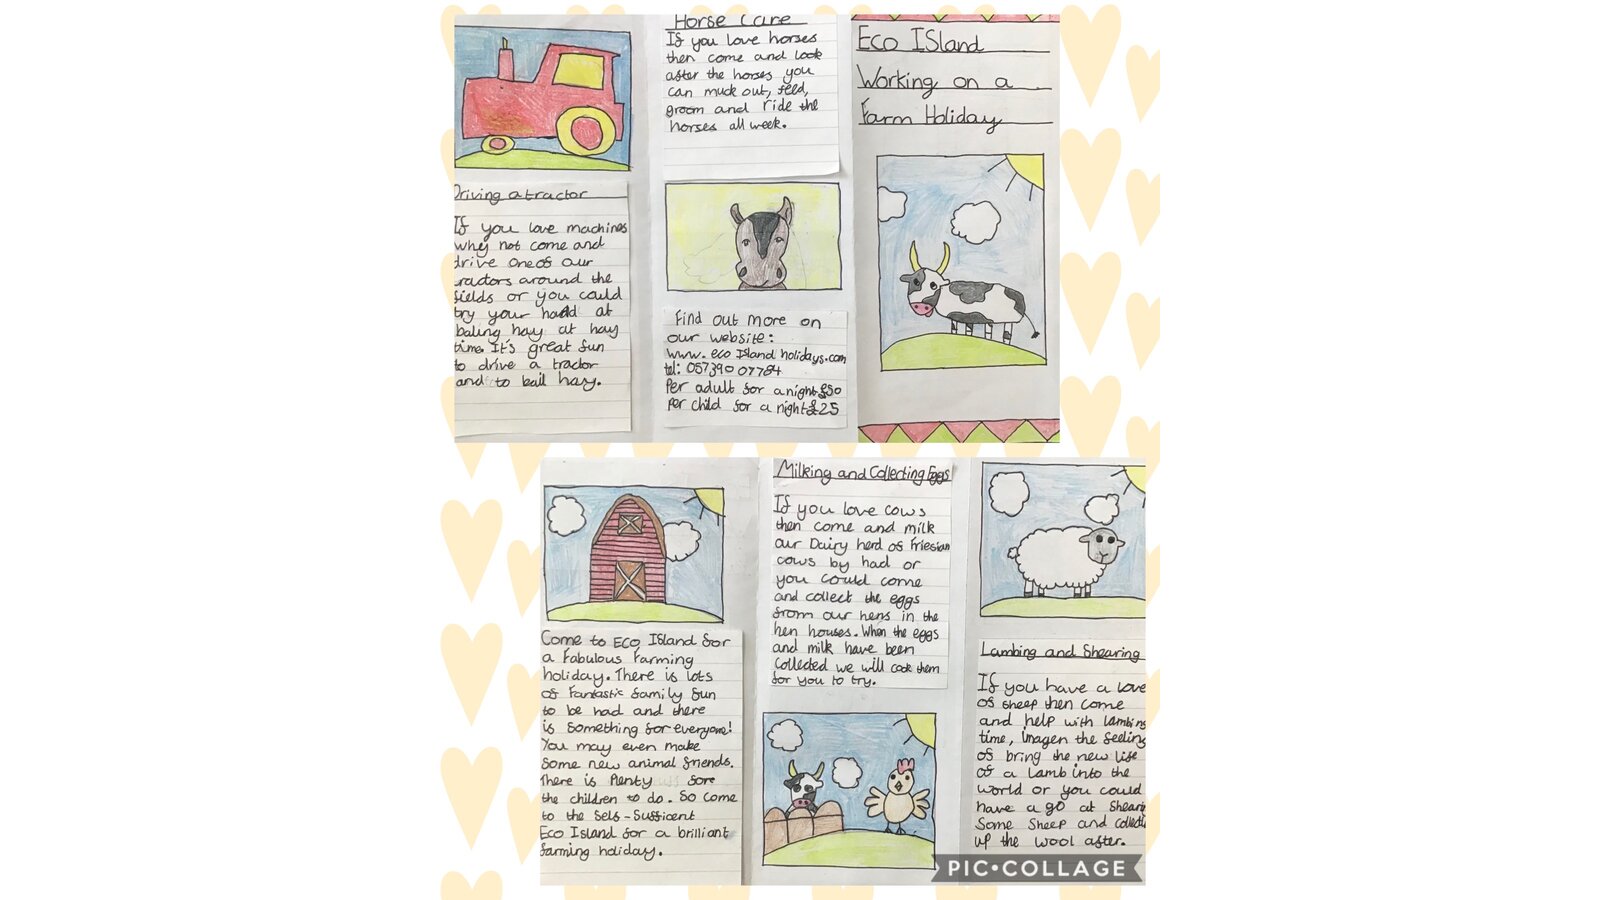 Driving a tractor
If you love machines
why not come and
drive one of our
tractors around the
fields or you could
try your hadd at
baling hay at hay
time. It's great fun
to drive a tractor
and to bail hay.
Horse Care
If you love horses
then come and look
after the horses you
can muck out, feed,
groom and ride the
horses all week.
Find out more on
our website:
www.eco Island holidays.com
tel: 05739007784
Per adult for a night £50
per child for a night £25
Eco ISland
Working on a
Farm Holiday
Come to ECO ISland for
a Fabulous Farming
holiday. There is lots
of Fantastic family fun
to be had and there
is Something for everyone!
You may even make
Some new animal friends.
There is Plenty fore
the children to do. So Come
to the Self-Sufficent
Eco Island for a brilliant
farming holiday.
Milking and Collecting Eggs
If you love cows
then come and milk
our Dairy herd of friesian
cows by had or
you could come
and collect the eggs
from our hens in the
hen houses. When the eggs
and milk have been
Collected we will cook them
for you to try.
Lambing and Shearing
If you have a love
of sheep then come
and help with lambing
time, Imagen the feeling
of bring the new life
of a lamb into the
world or you could
have a go at Shearin
Some Sheep and collecti
up the wool after.
PIC•COLLAGE